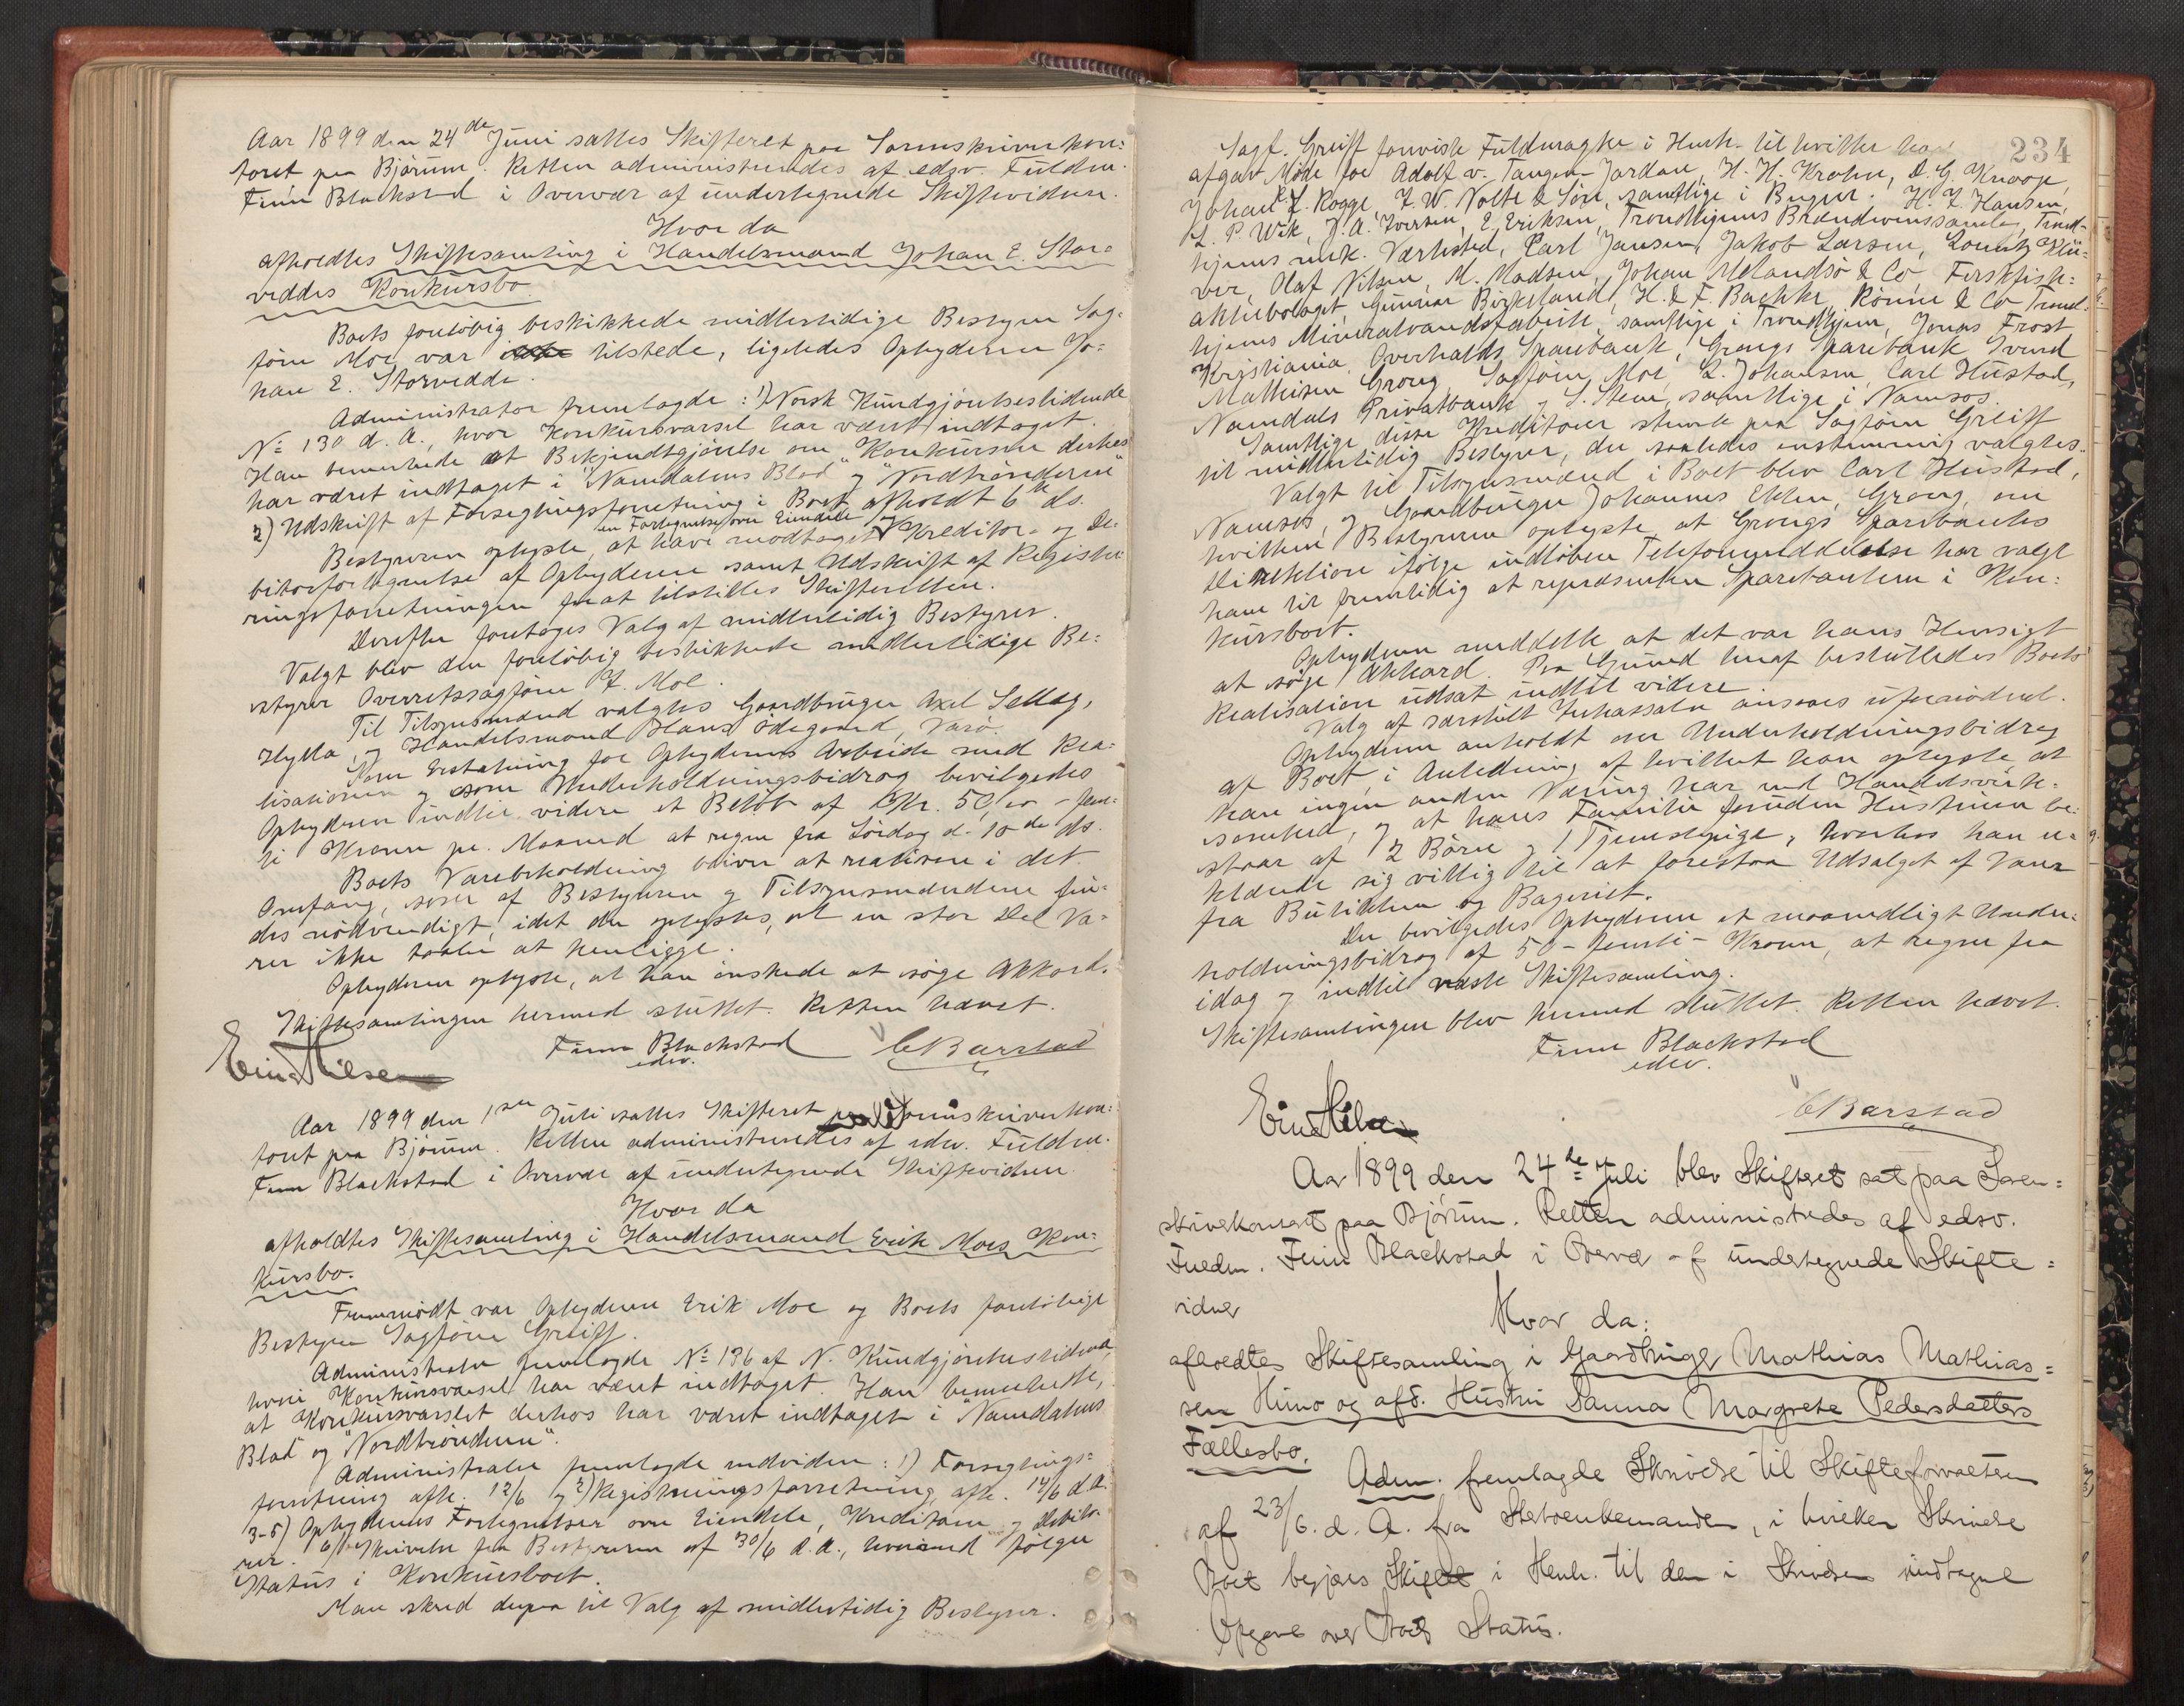 Aar 1899 den 24de Juni sattes Skifteret paa Sorenskriverkon-
toret paa Bjørum. Retten administreredes af edsv. Fuldm.
Finn Blackstad i Overvær af undertegnede Skiftevidner.
Hvor da
afholdtes Skiftesamling i Handelsmand Johan E. Stor-
veddes Konkursbo.
Boets foreløbig beskikkede midlertidige Bestyrer Sag-
fører Moe var tilstede, ligeledes Opbyderen Jo-
han E. Storvedde.
Administrator fremlagde: 1) Norsk Kundgjørelsestidende
No 130 d. A., hvor Konkursvarsel har været indtaget.
Han bemærkede at Bekjendtgjørelse om Konkursen derhos
har været indtaget i "Namdalens Blad" og "Nordtrønderen"
2) Udskrift af Forseglingsforretning i Boet afholdt 6te ds.
en Fortegnelse over Eiendele
Bestyreren oplyste, at have modtaget Kreditor- og De-
bitorfortegnelse af Opbyderen samt Udskrift af Registre-
ringsforretningen forat tilstilles Skifteretten.
Derefter foretoges Valg af midlertidig Bestyrer.
Valgt blev den foreløbig beskikkede midlertidige Be-
styrer Overretssagfører P. Moe.
Til Tilsynsmænd valgtes Gaardbruger Axel Sellæg,
Hylla, og Handelsmand Hans Ödegaard, Varö.
Som Erstatning for Opbyderens Arbeide med Rea-
lisationen og som Underholdningsbidrag bevilgedes
Opbyderen indtil videre et Beløb af Kr. 50,00 - fem-
ti Kroner pr. Maaned at regne fra Lørdag d. 10de ds.
Boets Varebeholdning bliver at realisere i det
Omfang, som af Bestyreren og Tilsynsmændene fin-
des nødvendigt, idet der oplystes, at en stor Del Va-
rer ikke taaler at henligge.
Opbyderen oplyste, at han ønskede at søge Akkord.
Skiftesamlingen hermed sluttet. Retten hævet.
Finn Blackstad
edsv.
C Barstad
Aar 1899 den 1ste Juli sattes Skifteret paa Sorenskriverkon-
toret paa Bjørum. Retten administreredes af edsv. Fuldm.
Finn Blackstad i Overvær af undertegnede Skiftevidner.
Hvor da
afholdtes Skiftesamling i Handelsmand Erik Moes Kon-
kursbo.
Fremmødt var Opbyderen Erik Moe og Boets foreløbige
Bestyrer Sagfører Greiff.
Administrator fremlagde No 136 af N. Kundgjørelsestidende,
hvori Konkursvarsel har været indtaget. Han bemærkede,
at Konkursvarslet derhos har været indtaget i "Namdalens
Blad" og "Nordtrønderen".
Administrator fremlagde endvidere: 1) Forseglings-
forretning afh. 12/6 og 2) Registreringsforretning, afh. 14/6 d. A.
3-5) Opbyderens Fortegnelser over Eiendele, Kreditorer og Debito-
rer. 6) Skrivelse fra Bestyreren af 30/6 d. A., hvormed følger
Status i Konkursboet.
Man skred derpaa til Valg af midlertidig Bestyrer.
234
Sagf. Greiff foreviste Fuldmagter i Henh. til hvilke han
afgav Møde for Adolf v. Tangen-Jordan, H. H. Krohn, D. G. Knoop,
Johan L. Rogge, F. W. Nolte & Søn, samtlige i Bergen. H. F. Hansen,
L. P. Wik, J. A. Iversen, E. Eriksen, Trondhjems Brændevinssamlag, Trond-
hjems mek. Værksted, Carl Jansen, Jakob Larsen, Lorentz Klü-
ver, Olaf Nilsen, M. Madsen, Johan Melandsö & Co, Ferskfisk-
aktiebolaget, Gunnar Birkeland, H. & F. Bachke, Rønne & Co Trond-
hjems Mineralvandsfabrik, samtlige i Trondhjem, Jonas Frost
Kristiania, Overhalds Sparebank, Grongs Sparebank Svend
Mathisen Grong, Sagfører Moe, L. Johansen, Carl Hustad,
Namdals Privatbank og S. Steen, samtlige i Namsos.
Samtlige disse Kreditorer stemte paa Sagfører Greiff
til midlertidig Bestyrer, der saaledes enstemmig valgtes.
Valgt til Tilsynsmænd i Boet blev Carl Hustad,
Namsos, og Gaardbruger Johannes Ekker, Grong, om
hvilken Bestyreren oplyste at Grongs Sparebanks
Direktion ifølge indløben Telefonmeddelelse har valgt
ham til fremtidig at repræsentere Sparebanken i Kon-
kursboet.
Opbyderen meddelte at det var hans Hensigt
at søge Akkord. Paa Grund heraf besluttedes Boets
Realisation udsat indtil videre.
Valg af særskilt Inkassator ansaaes ufornødent.
Opbyderen anholdt om Underholdningsbidrag
af Boet, i Anledning af hvilket han oplyste, at
han ingen anden Næring har end Handelsvirk-
somhed, og at hans Familie foruden Hustruen be-
staar af 2 Børn og 1 Tjenestepige, hvorhos han er-
klærede sig villig til at forestaa Udsalget af Varer
fra Butikken og Bageriet.
Der bevilgedes Opbyderen et maanedligt Under-
holdningsbidrag af 50 - femti - Kroner, at regne fra
idag og indtil næste Skiftesamling.
Skiftesamlingen blev hermed sluttet. Retten hævet.
Finn Blackstad
edsv.
C Barstad
Aar 1899 den 24de Juli blev Skifteret sat paa Soren-
skriverkontoret paa Bjørum. Retten administredes af edsv.
Fuldm. Finn Blackstad i Overvær af undertegnede Skifte-
vidner
Hvor da:
afholdtes Skiftesamling i Gaardbruger Mathias Mathias-
sen Himo og afd. Hustru Sanna Margrete Pedersdatters
Fællesbo.
Adm. fremlagde Skrivelse til Skifteforvalteren
af 23/6. d. A. fra Stervboenkemanden, i hvilken Skrivelse
Boet begjæres Skiftet i Henh. til den i Skrivelsen indtagne
Opgave over Boets Status.